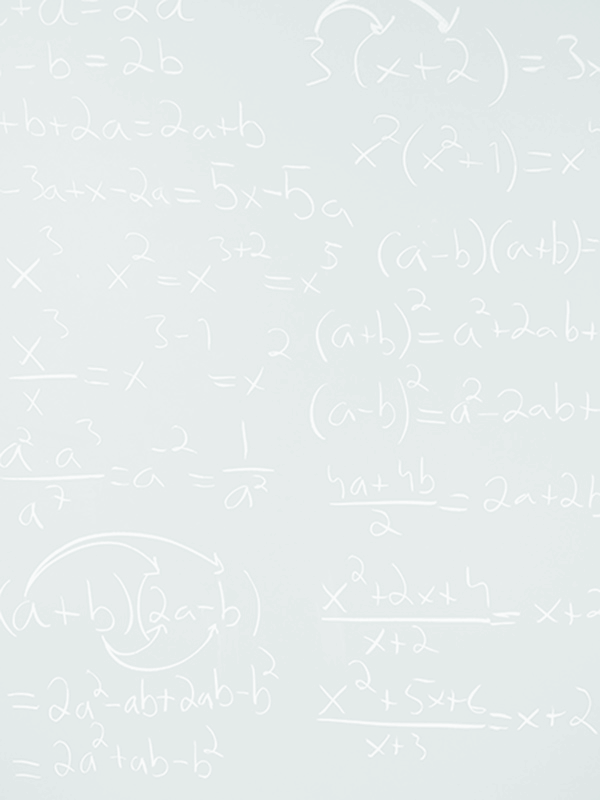 +a=2a
-b=2b
+b+2a=2a+b
-3a+x-2a=5x-5a
x³ · x² = x³⁺² = x⁵
x³/x = x³⁻¹ = x²
a²·a³/a⁷ = a⁻² = 1/a²
(a+b)(2a-b)
= 2a²-ab+2ab-b²
= 2a²+ab-b²
3(x+2) = 3x
x²(x²+1)=x⁴
(a-b)(a+b)=
(a+b)²=a²+2ab+
(a-b)²=a²-2ab+
4a+4b/2 = 2a+2b
x²+2x+4/x+2 = x+2
x²+5x+6/x+3 = x+2